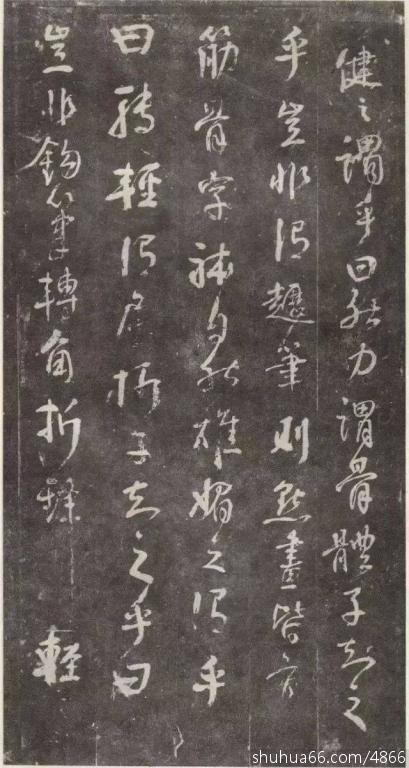 健之謂乎曰然力謂骨體子知之
乎豈非謂趯筆則點畫皆有
筋骨字體自然雄媚之謂乎
曰輕謂屈折子知之乎曰
豈非鉤筆轉角折鋒輕
shuhua66.com/4866